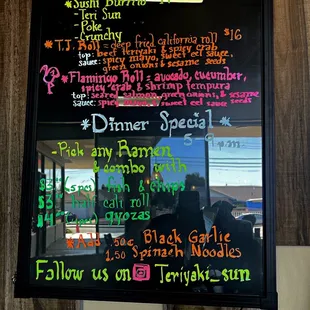 *Sushi Burrito
- Teri Sun
- Poke
- Crunchy
*T.J. Roll = deep fried california roll $16
top: beef teriyaki & spicy crab
sauce: spicy mayo, sweet eel sauce,
green onions & sesame seeds
*Flamingo Roll = avocado, cucumber,
spicy crab, & shrimp tempura
top: seared salmon, green onions, & sesame
sauce: spicy sweet eel sauce seeds
*Dinner Special*
5-9 p.m.
-Pick any Ramen
& combo with
fish & chips
cali roll
gyozas
*Add .50¢ Black Garlic
1.50 Spinach Noodles
Follow us on Teriyaki_sun